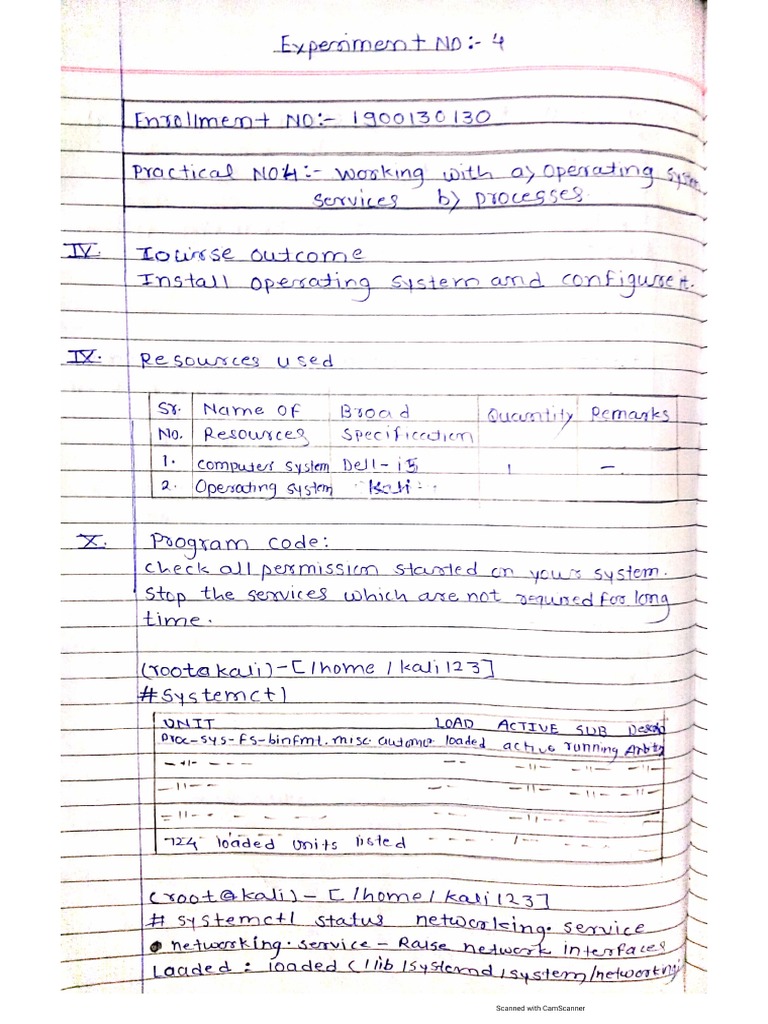 Experiment NO:- 4
Enrollment NO:- 1900130130
Practical NO:4:- Working with a) Operating System
services b) processes
IV. Iourse outcome
Install operating system and configure it.
IX. Resources used
Sr. Name OF Broad Quantity Remarks
No. Resources Specification
1. Computer System Dell-i5 1 -
2. Operating System Kali
X. Program code:
check all permission started on your system.
stop the services which are not required for long
time.
(root@kali)-[/home/kali123]
# systemctl
UNIT LOAD ACTIVE SUB Descri
Proc-sys-fs-binfmt.misc.automo loaded active running Arbitr
-11- - - - - - -11- -11- -11-
-11- - - - - - -11- -11- -11-
-11- - - - - - -11- -11- -
724 loaded units listed - - - - 1- - - -
(root@kali)-[/home/kali123]
# systemctl status networking.service
• networking.service - Raise network interfaces
Loaded : loaded (/lib/systemd/system/networking
Scanned with CamScanner